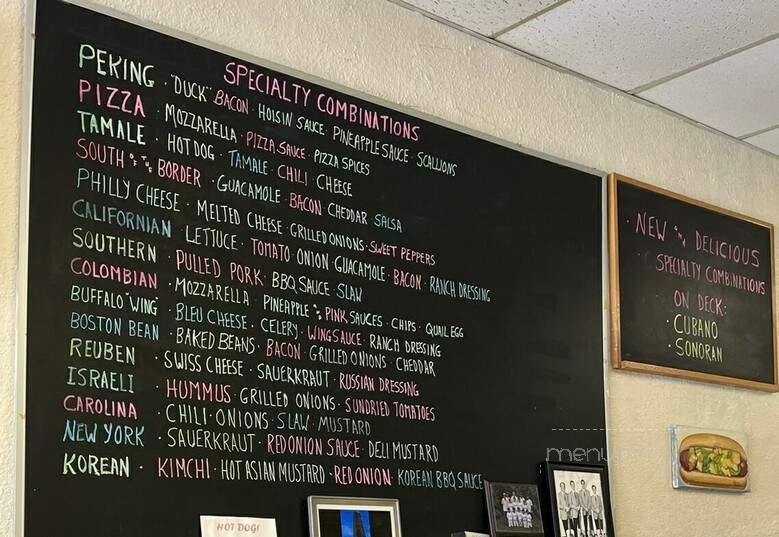 SPECIALTY COMBINATIONS
PEKING · "DUCK" BACON · HOISIN SAUCE · PINEAPPLE SAUCE · SCALLIONS
PIZZA · MOZZARELLA · PIZZA SAUCE · PIZZA SPICES
TAMALE · HOT DOG · TAMALE · CHILI · CHEESE
SOUTH OF THE BORDER · GUACAMOLE · BACON · CHEDDAR · SALSA
PHILLY CHEESE · MELTED CHEESE · GRILLED ONIONS · SWEET PEPPERS
CALIFORNIAN · LETTUCE · TOMATO · ONION · GUACAMOLE · BACON · RANCH DRESSING
SOUTHERN · PULLED PORK · BBQ SAUCE · SLAW
COLOMBIAN · MOZZARELLA · PINEAPPLE & PINK SAUCES · CHIPS · QUAIL EGG
BUFFALO "WING" · BLEU CHEESE · CELERY · WING SAUCE · RANCH DRESSING
BOSTON BEAN · BAKED BEANS · BACON · GRILLED ONIONS · CHEDDAR
REUBEN · SWISS CHEESE · SAUERKRAUT · RUSSIAN DRESSING
ISRAELI · HUMMUS · GRILLED ONIONS · SUNDRIED TOMATOES
CAROLINA · CHILI · ONIONS · SLAW · MUSTARD
NEW YORK · SAUERKRAUT · RED ONION SAUCE · DELI MUSTARD
KOREAN · KIMCHI · HOT ASIAN MUSTARD · RED ONION · KOREAN BBQ SAUCE
NEW AND DELICIOUS
SPECIALTY COMBINATIONS
ON DECK:
· CUBANO
· SONORAN
HOT DOG!